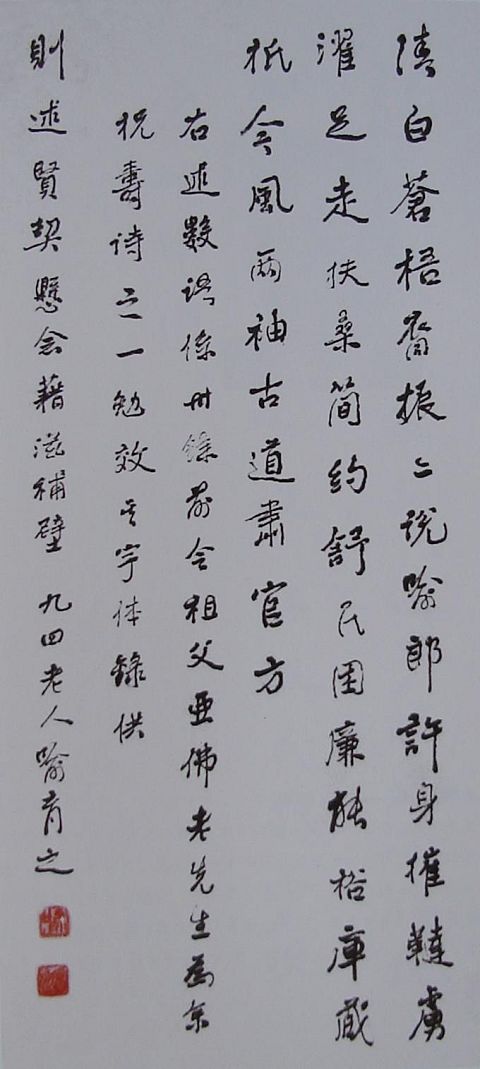 清白蒼梧裔振々說喻郎許身摧韃虜
濯足走扶桑簡約舒民困廉能裕庫藏
祇今風兩袖古道肅官方
右述數語係卅餘前令祖父亞佛老先生為余
祝壽诗之一勉效其字体錄供
則述賢契懸念藉滋補壁 九四老人喻育之